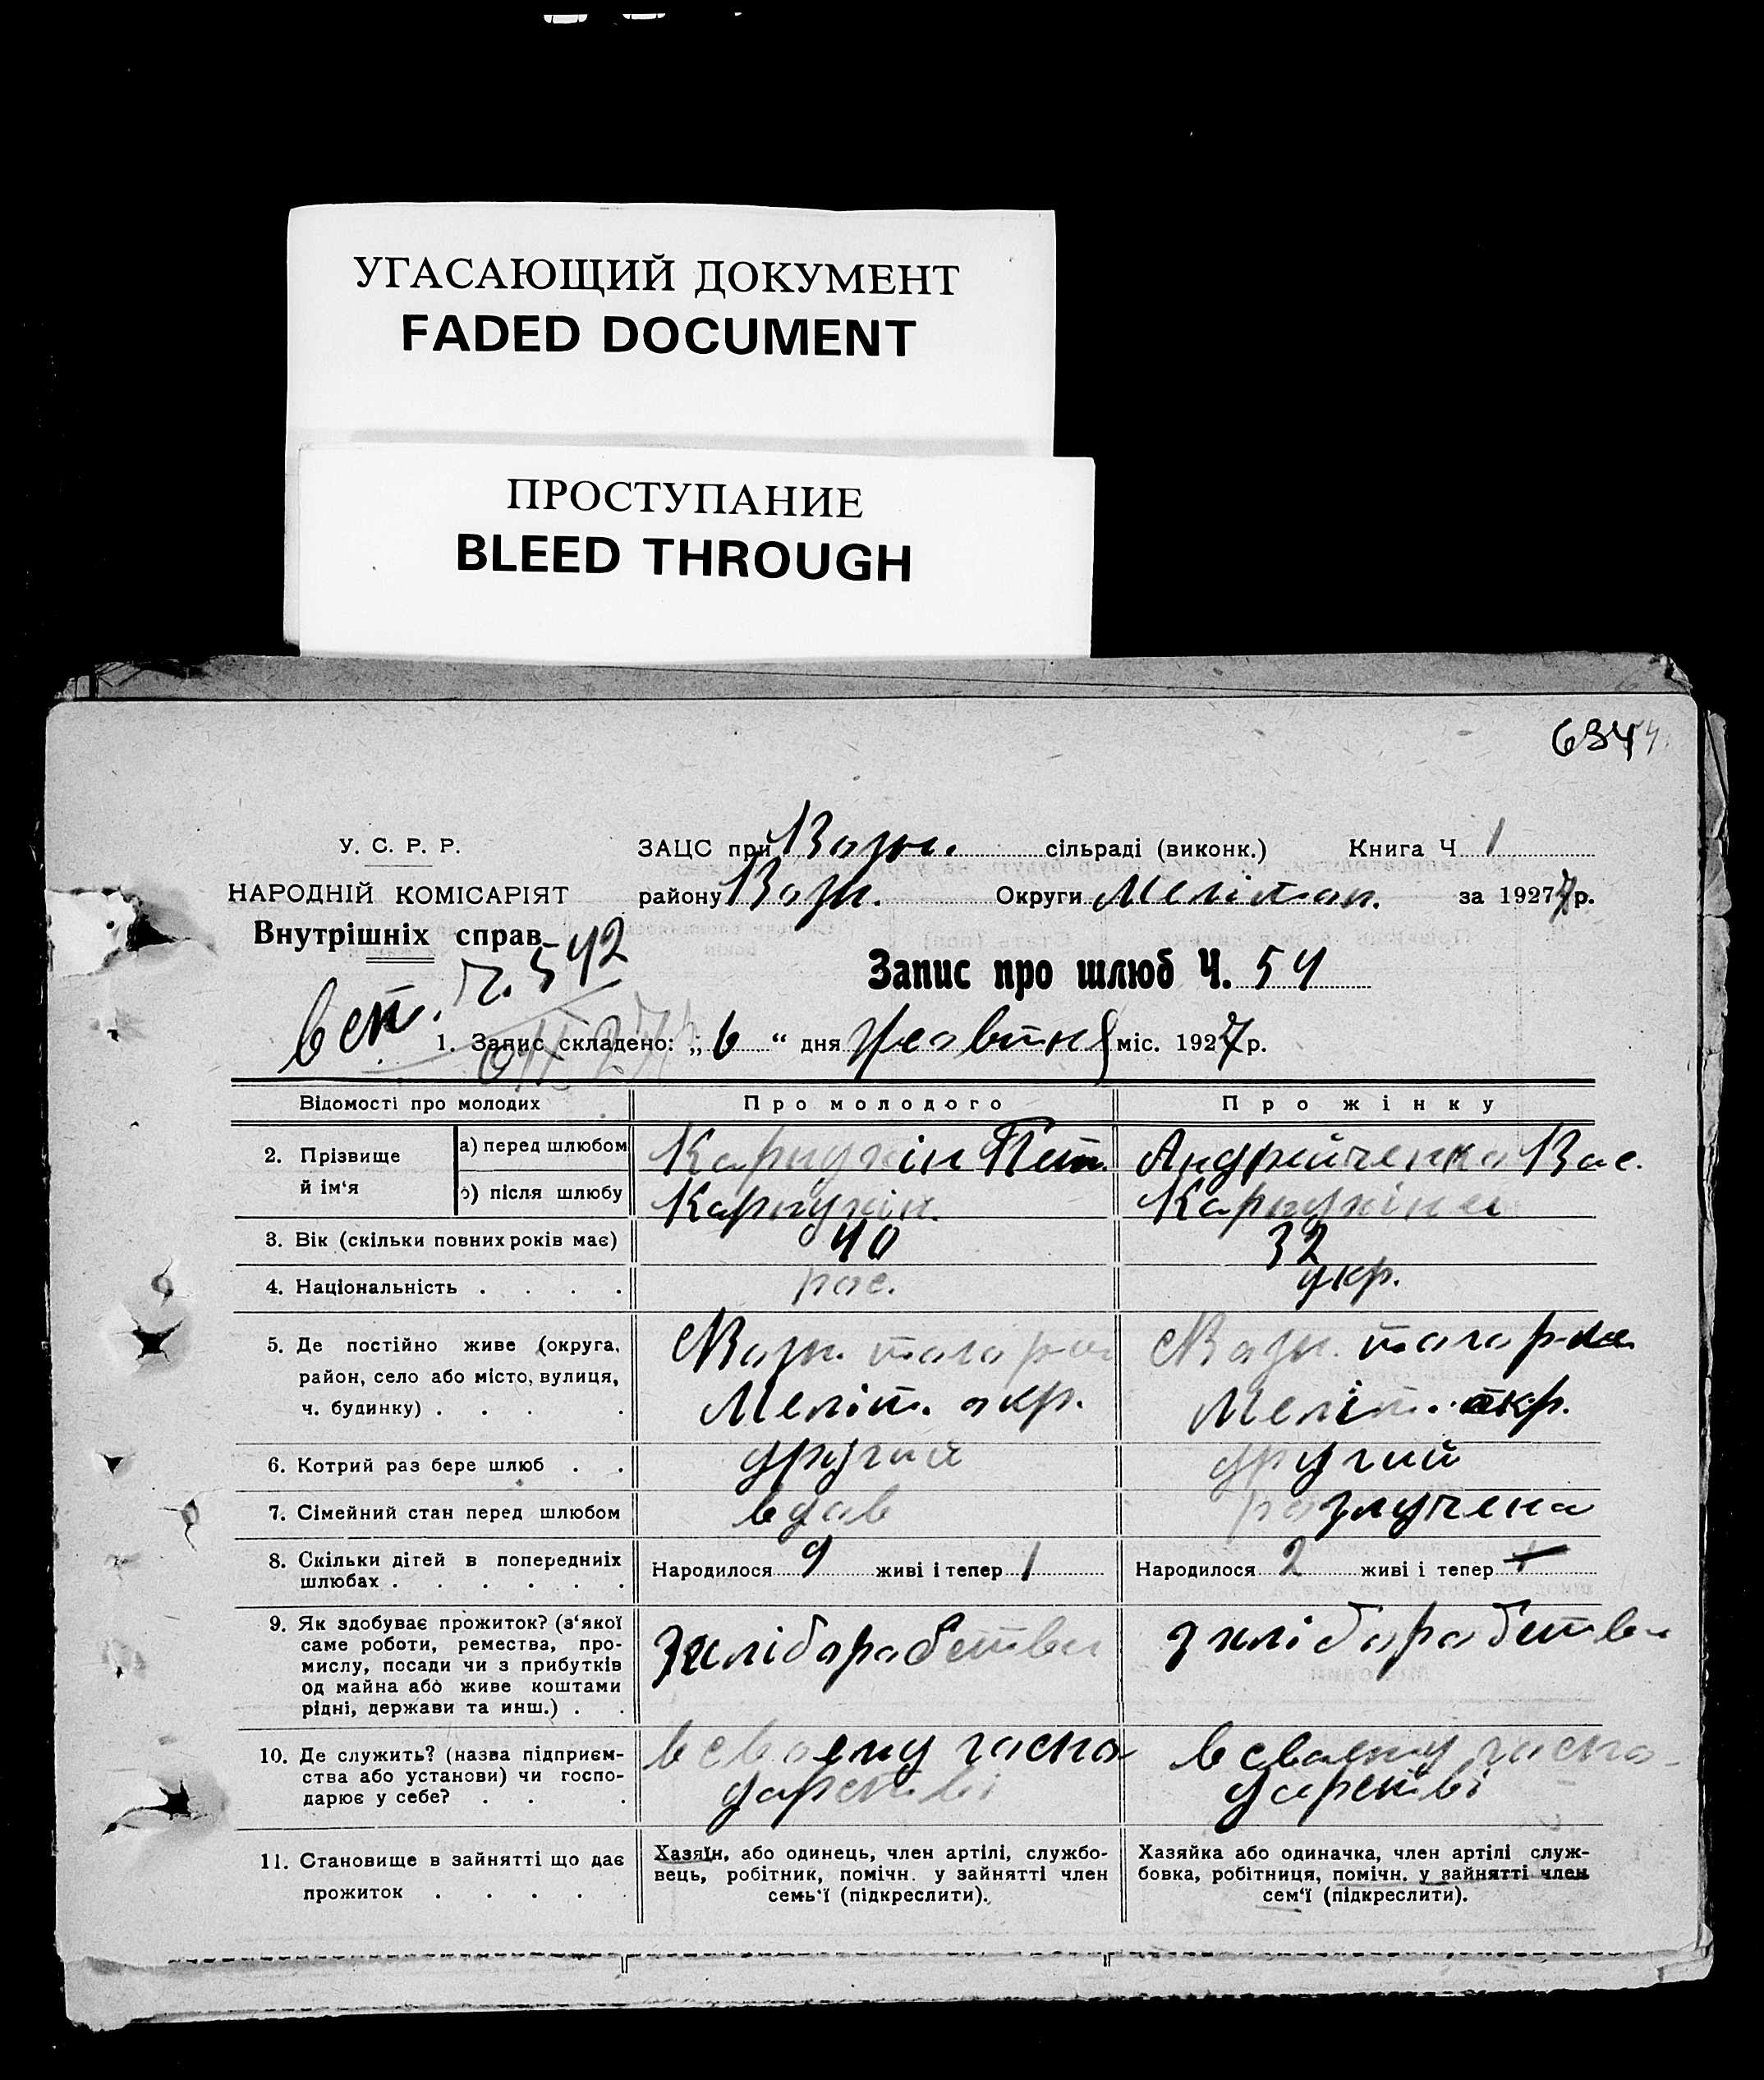 УГАСАЮЩИЙ ДОКУМЕНТ
FADED DOCUMENT
ПРОСТУПАНИЕ
BLEED THROUGH
634
У. С. Р. Р.
НАРОДНІЙ КОМІСАРІЯТ
Внутрішніх справ
ЗАЦС при Возн. сільраді (виконк.) Книга Ч 1
району Возн. Округи Мелітоп. за 1927 7 р.
ч. 542
Запис про шлюб Ч. 54
1. Запис складено: „ 6 “ дня жовтня міс. 1927 р.
Відомості про молодих Про молодого Про жінку
2. Прізвище й ім‘я
а) перед шлюбом Карпухін Пет. Андрійченко Вас.
б) після шлюбу Карпухін. Карпухіна
3. Вік (скільки повних років має) 40 32
4. Національність . . . . рос. укр.
5. Де постійно живе (округа, район, село або місто, вулиця, ч. будинку) . . . .
с Возн. того р-на
Меліт. окр.
с Возн. того р-на
Меліт. окр.
6. Котрий раз бере шлюб . . другий другий
7. Сімейний стан перед шлюбом вдов розлучена
8. Скільки дітей в попередниіх шлюбах . . . . . .
Народилося 9 живі і тепер 1 Народилося 2 живі і тепер
9. Як здобуває прожиток? (з‘якої
саме роботи, ремества, про-
мислу, посади чи з прибутків
од майна або живе коштами
рідні, держави та инш.) . .
з хліборобства з хліборобства
10. Де служить? (назва підприєм-
ства або установи) чи госпо-
дарює у себе? . . .
в своєму госпо-
дарстві
в своєму госпо-
дарстві
11. Становище в зайнятті що дає
прожиток . . . . .
Хазяїн, або одинець, член артілі, службо-
вець, робітник, помічн. у зайнятті член
семь‘ї (підкреслити).
Хазяйка або одиначка, член артілі служ-
бовка, робітниця, помічн. у зайнятті член
сем‘ї (підкреслити).